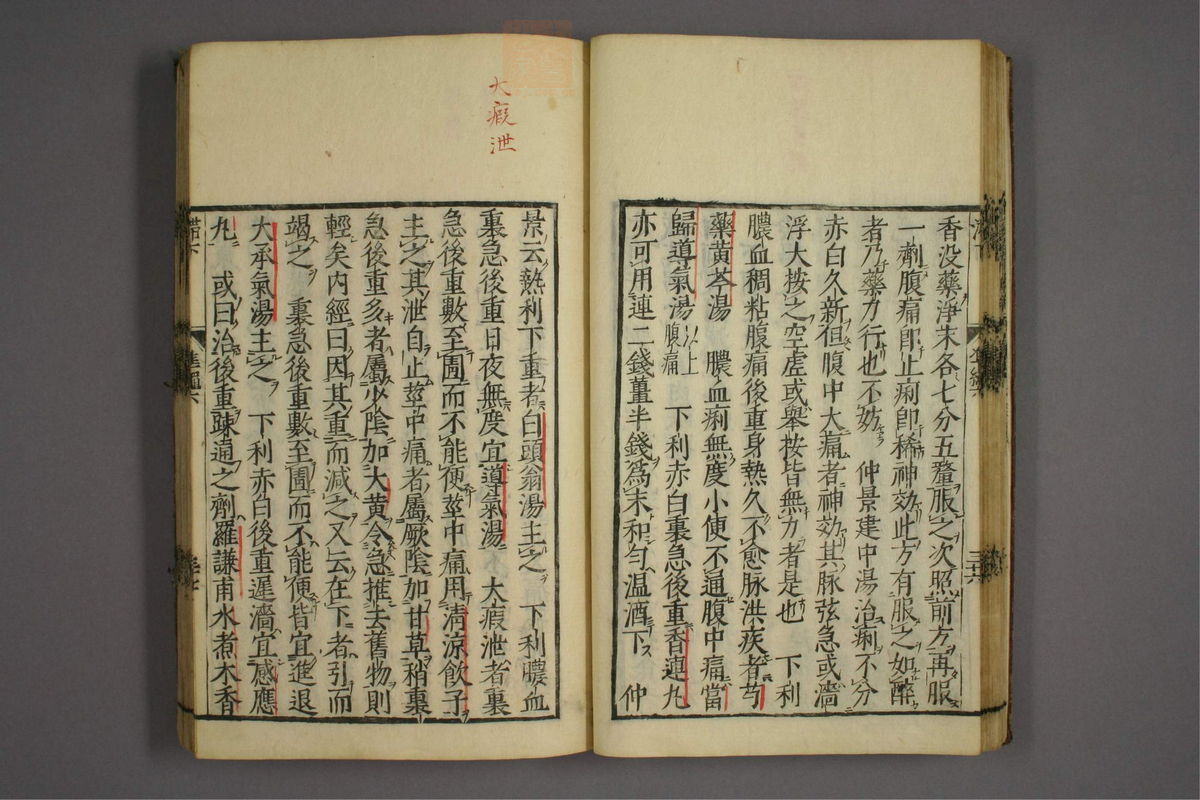 香没藥淨末各七分五釐服之次照前方再服
一劑腹痛即止痢即稀神効此方有服之如醉
者乃藥力行也不妨　仲景建中湯治痢不分
赤白久新但腹中大痛者神効其脉弦急或濇
浮大按之空虛或舉按皆無力者是也　下利
膿血稠粘腹痛後重身熱久不愈脉洪疾者芍
藥黄芩湯　膿血痢無度小便不通腹中痛當
歸導氣湯以上腹痛　下利赤白裏急後重香連丸
亦可用連二錢薑半錢爲末和匀温酒下　仲
景云熱利下重者白頭翁湯主之　下利膿血
裏急後重日夜無度宜導氣湯　大瘕泄者裏
急後重數至圊而不能便莖中痛用清涼飲子
主之其泄自止莖中痛者屬厥陰加甘草稍裏
急後重多者屬少陰加大黄令急推去舊物則
輕矣内經曰因其重而減之又云在下者引而
竭之　裏急後重數至圊而不能便皆宜進退
大承氣湯主之　下利赤白後重遲濇宜感應
丸　或曰治後重疎通之劑羅謙甫水煮木香
大瘕泄
準繩六
三十六